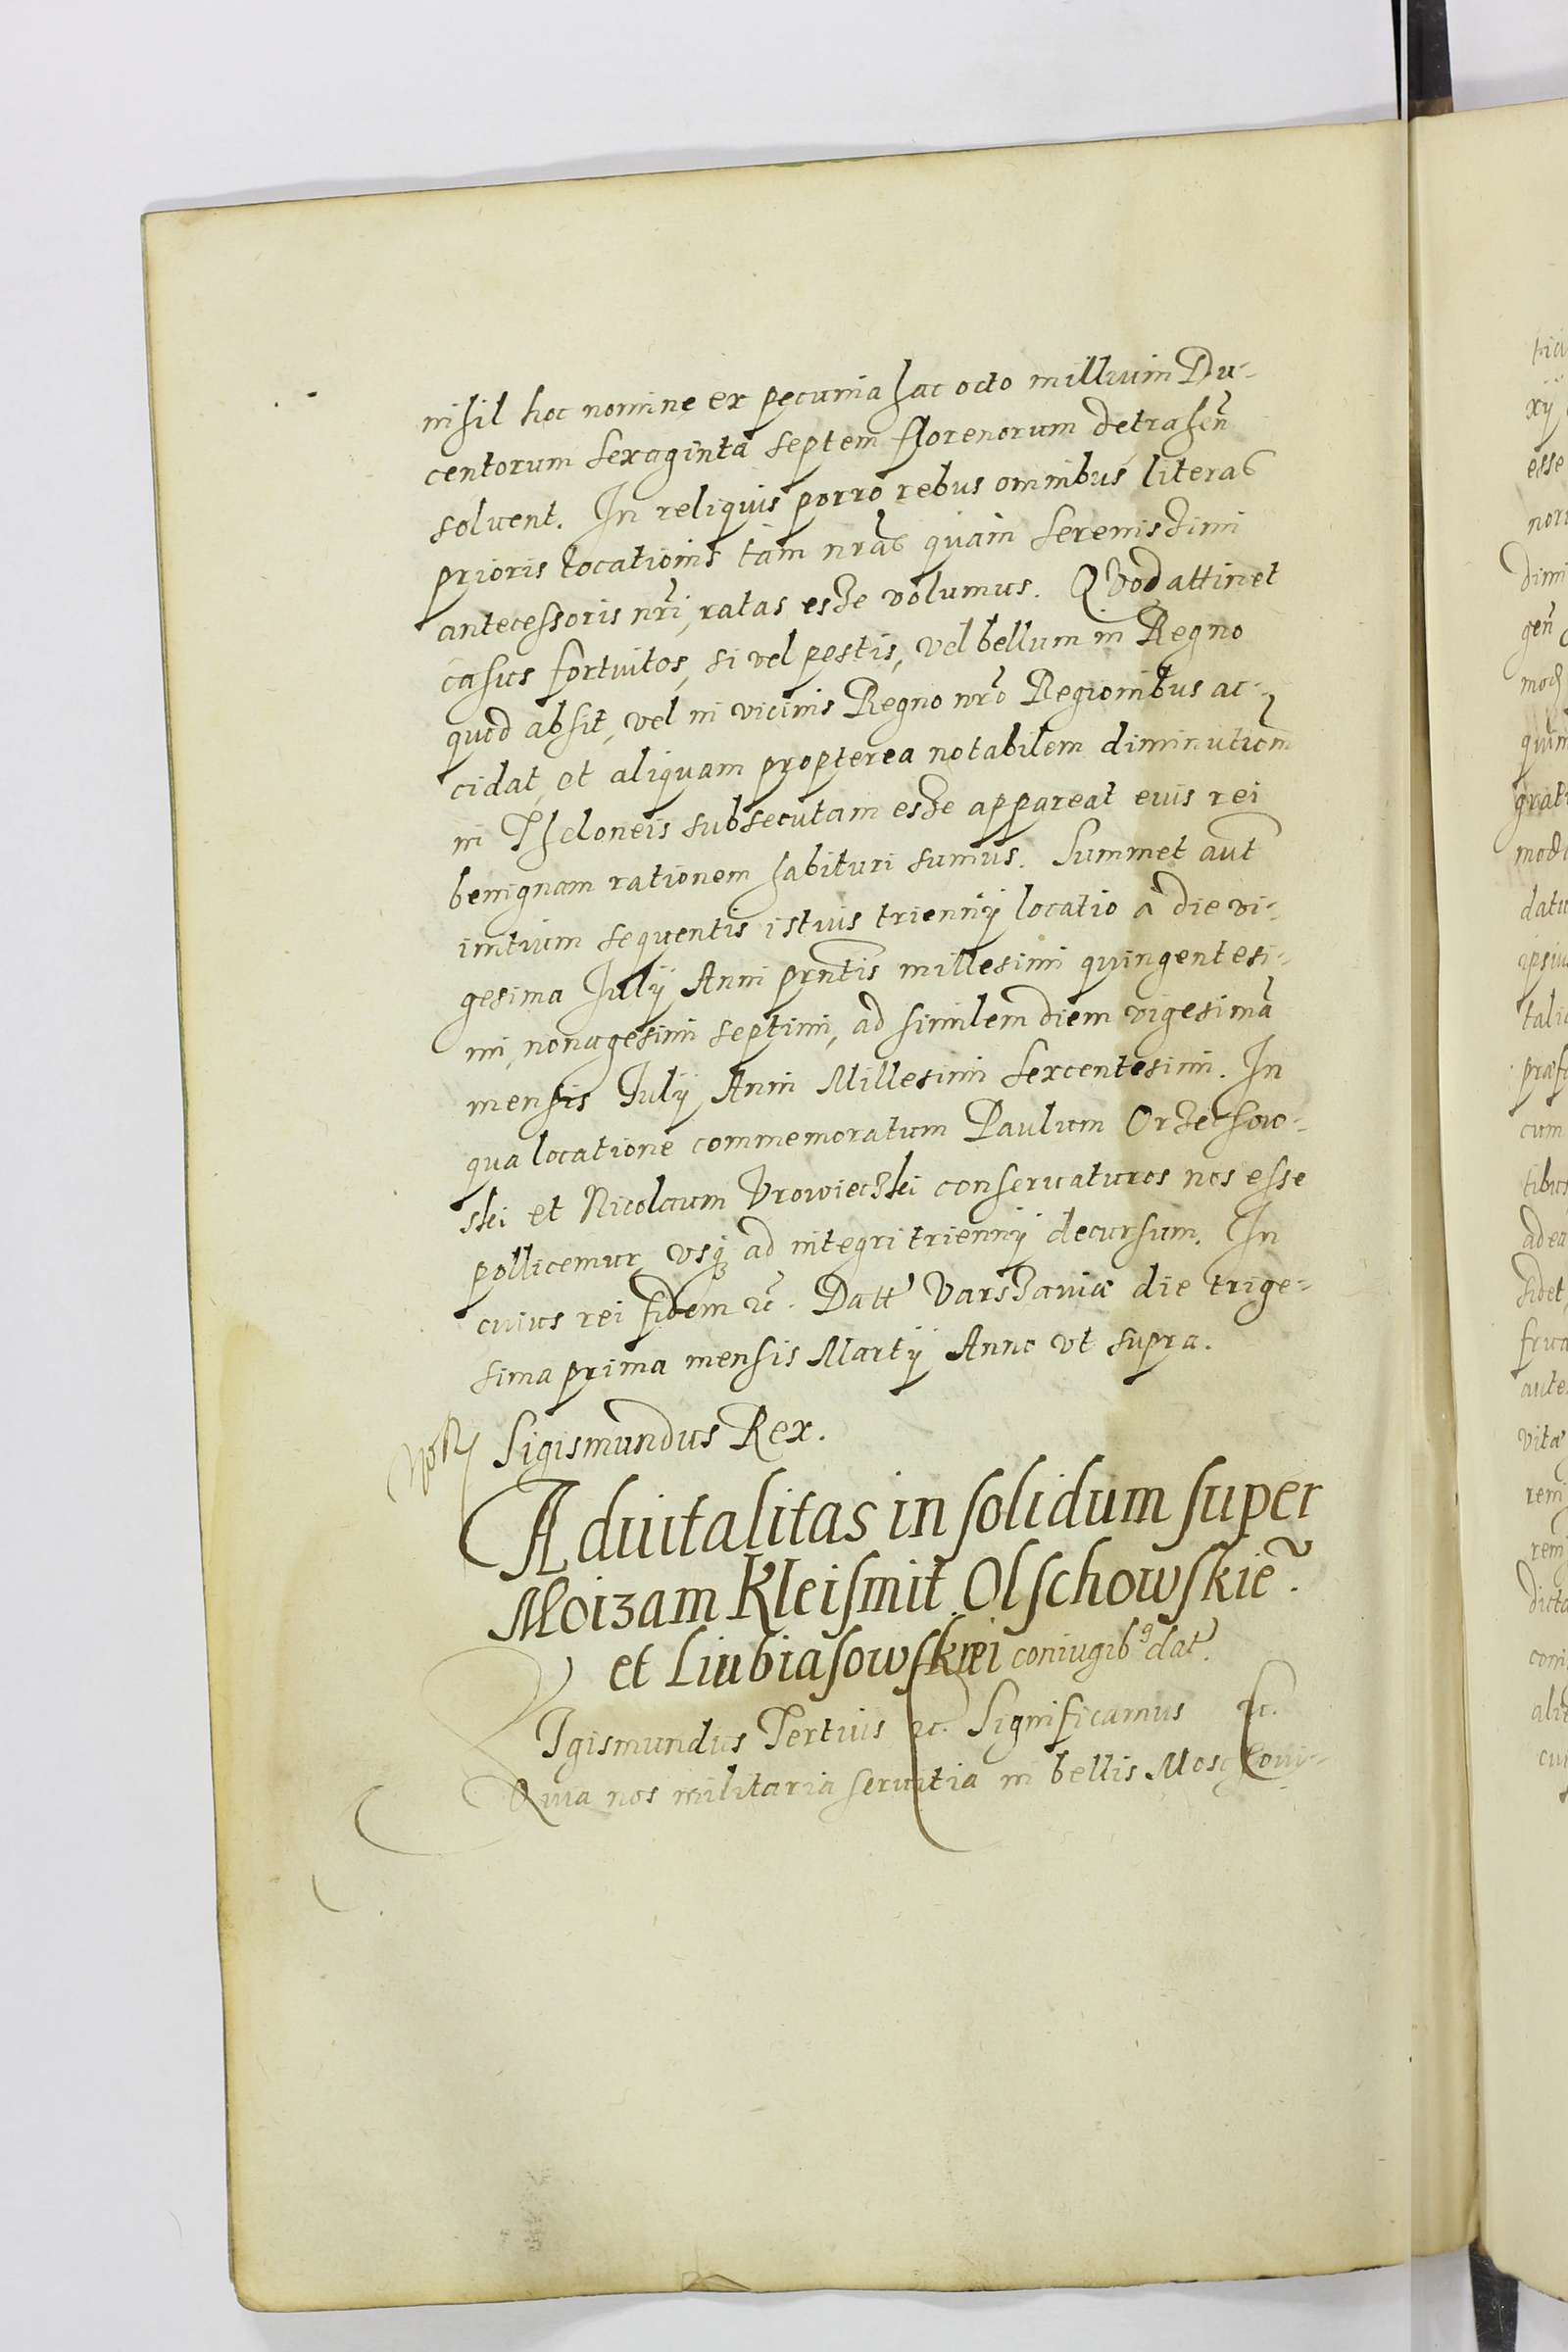 nihil hoc nomine ex pecunia hac octo millium Du-
centorum sexaginta septem florenorum detrahen̄
soluent. In reliquis porro rebus omnibus literas
prioris locationis tam nr̄as quam Serenissimi
antecessoris nr̄i, ratas esse volumus. Quod attinet
casus fortuitos, si vel pestis, vel bellum in Regno
quod absit, vel in vicinis Regno nr̄o Regionibus ac-
cidat, et aliquam propterea notabilem diminutiom̄
in Theloneis subsecutam esse appareat euis rei
benignam rationem habituri sumus. Summet aut̄
initium sequentis istius triennij locatio a die vi-
gesima Julij Anni prn̄tis millesimi quingentesi-
mi, nonagesimi septimi, ad similem diem vigesimā
mensis Julij Anni Millesimi sexcentesimi. In
qua locatione commemoratum Paulum Orzechow-
ski et Nicolaum Vrowieczki conseruaturos nos esse
pollicemur, vsq; ad integri triennij decursum. In
cuius rei fidem &c. Datt Varszauiæ die trige-
sima prima mensis Martij Anno vt supra.
Sigismundus Rex.
Aduitalitas in solidum super
Moizam Kleismit Olschowskiē.
et Liubiasowskiei coniugib9 dat.
Igismundus Tertius &c. Significamus &c.
Quia nos militaria seruitia in bellis Moschoui-
xij
esse